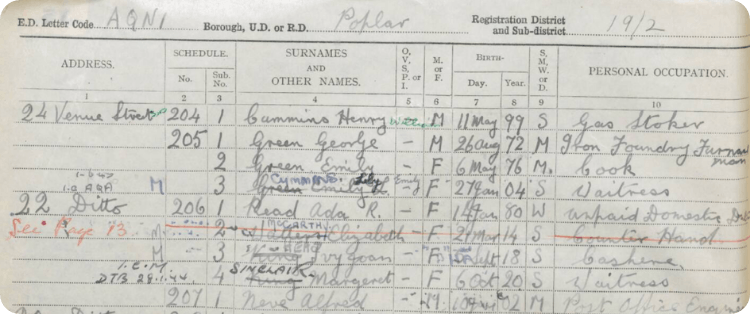 E.D. Letter Code AQNI Borough, U.D. or R.D. Poplar Registration District and Sub-district 19/2
ADDRESS. SCHEDULE. No. Sub. No. SURNAMES AND OTHER NAMES. O, V, S, P. or I. M. or F. BIRTH— Day. Year. S, M, W, or D. PERSONAL OCCUPATION.
1 2 3 4 5 6 7 8 9 10
24 Venue Street 204 1 Cummins Henry M 11 May 99 S Gas Stoker
205 1 Green George – M 26 Aug 72 M Iron Foundry Furnaceman
2 Green Emily – F 6 May 76 M. Cook
CUMMINS
M 3 Green Emily – F 27 Jan 04 S Waitress
22 Ditto 206 1 Read Ada R. – F 14 Jan 80 W Unpaid Domestic
McCARTHY
See Page 13 2 Elizabeth – F 21 Mar 14 S Counter Hand
READ
M 3 King Ivy Joan F Sept 18 S Cashier
SINCLAIR
I.E.M. DTB 29.1.44 4 King Margaret – F 6 Oct 20 S Waitress
207 1 Neve Alfred – M. 02 M Post Office